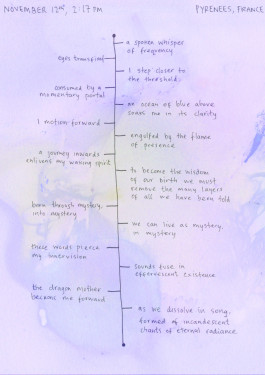 NOVEMBER 12ND, 2:17 PM
PYRENEES, FRANCE
a spoken whisper
of frequency
eyes transfixed
I step closer to
the threshold
consumed by a
momentary portal
an ocean of blue above
me in its clarity
I motion forward
engulfed by the flame
of presence
a journey inwards
enlivens my waking spirit
to become the wisdom
of our birth we must
remove the many layers
of all we have been told
born through mystery,
into mystery
we can live as mystery,
in mystery
these words pierce
my innervision
sounds fuse in
effervescent existence
the dragon mother
beckons me forward
as we dissolve in song,
formed of incandescent
chants of eternal radiance